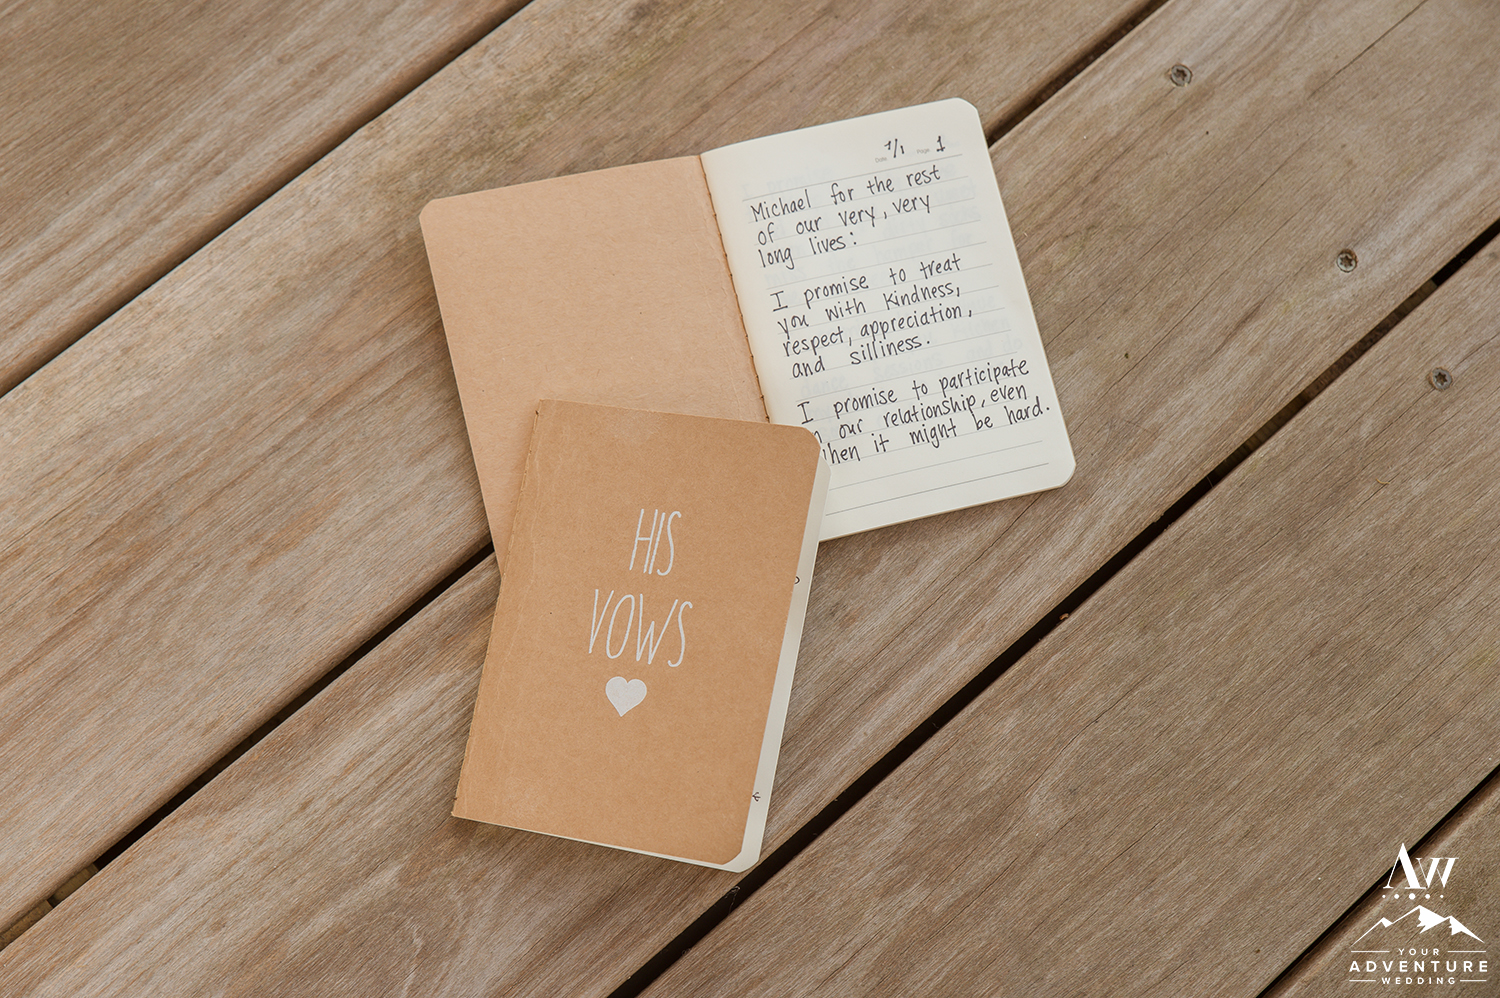 Date 1/1 Page 1
Michael for the rest
of our very, very
long lives:
I promise to treat
you with kindness,
respect, appreciation,
and silliness.
I promise to participate
in our relationship, even
when it might be hard.
HIS
VOWS
AW
YOUR
ADVENTURE
WEDDING